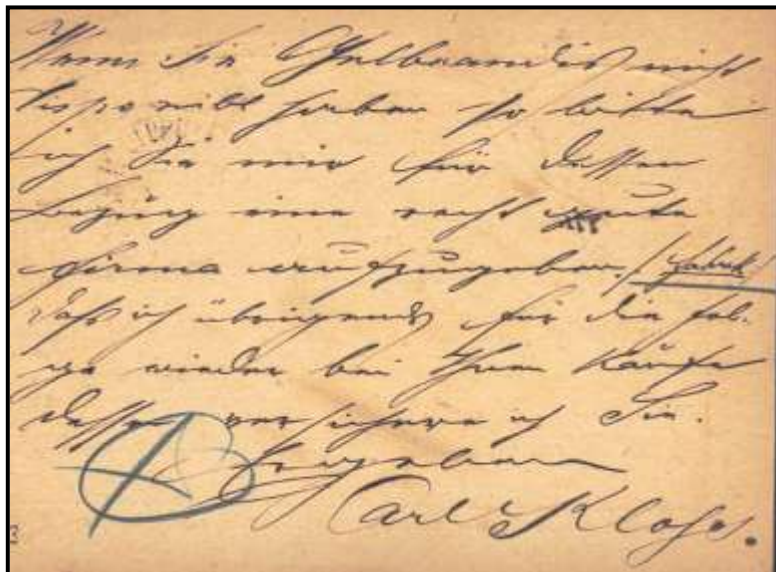 Wenn Sie Gelbbrandis nicht
disponibl haben so bitte
ich Sie mir für dessen
bezug eine recht gute
Firma aufzugeben. / Fabrik
Daß ich übrigends für die Fol-
ge wieder bei Ihnen Kaufe
dessen versichere ich Sie.
Ergeben
Carl Klose.